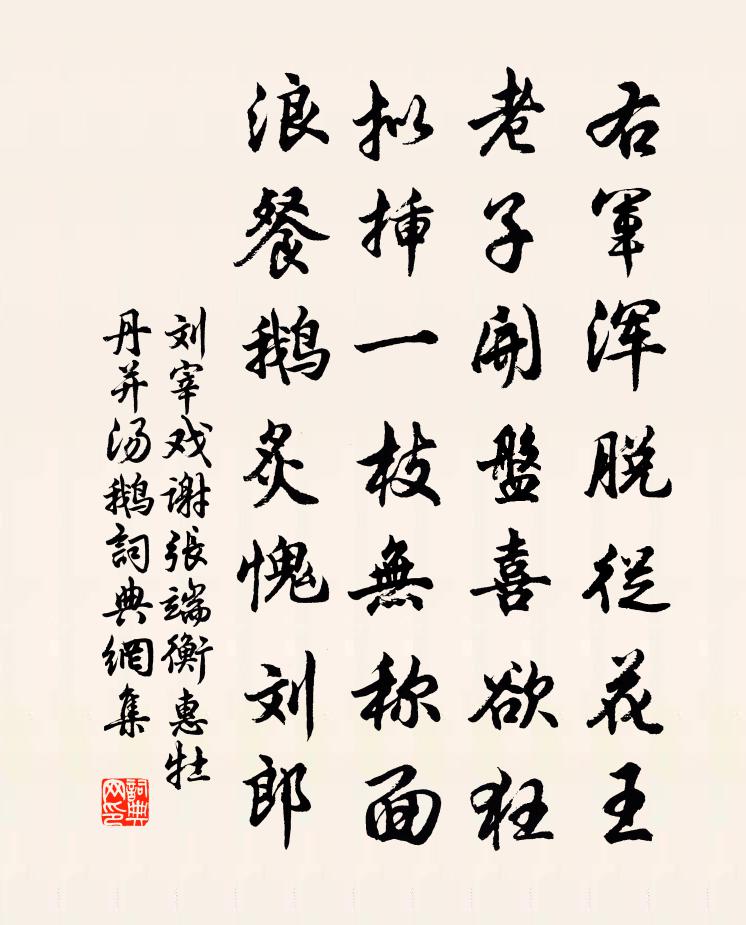 右军浑脱從花王
老子開盤喜欲狂
拟挿一枝無称面
浪餐鹅炙愧刘郎
刘宰戏谢張端衡惠牡
丹并汤鹅詞典網集
詞典网印